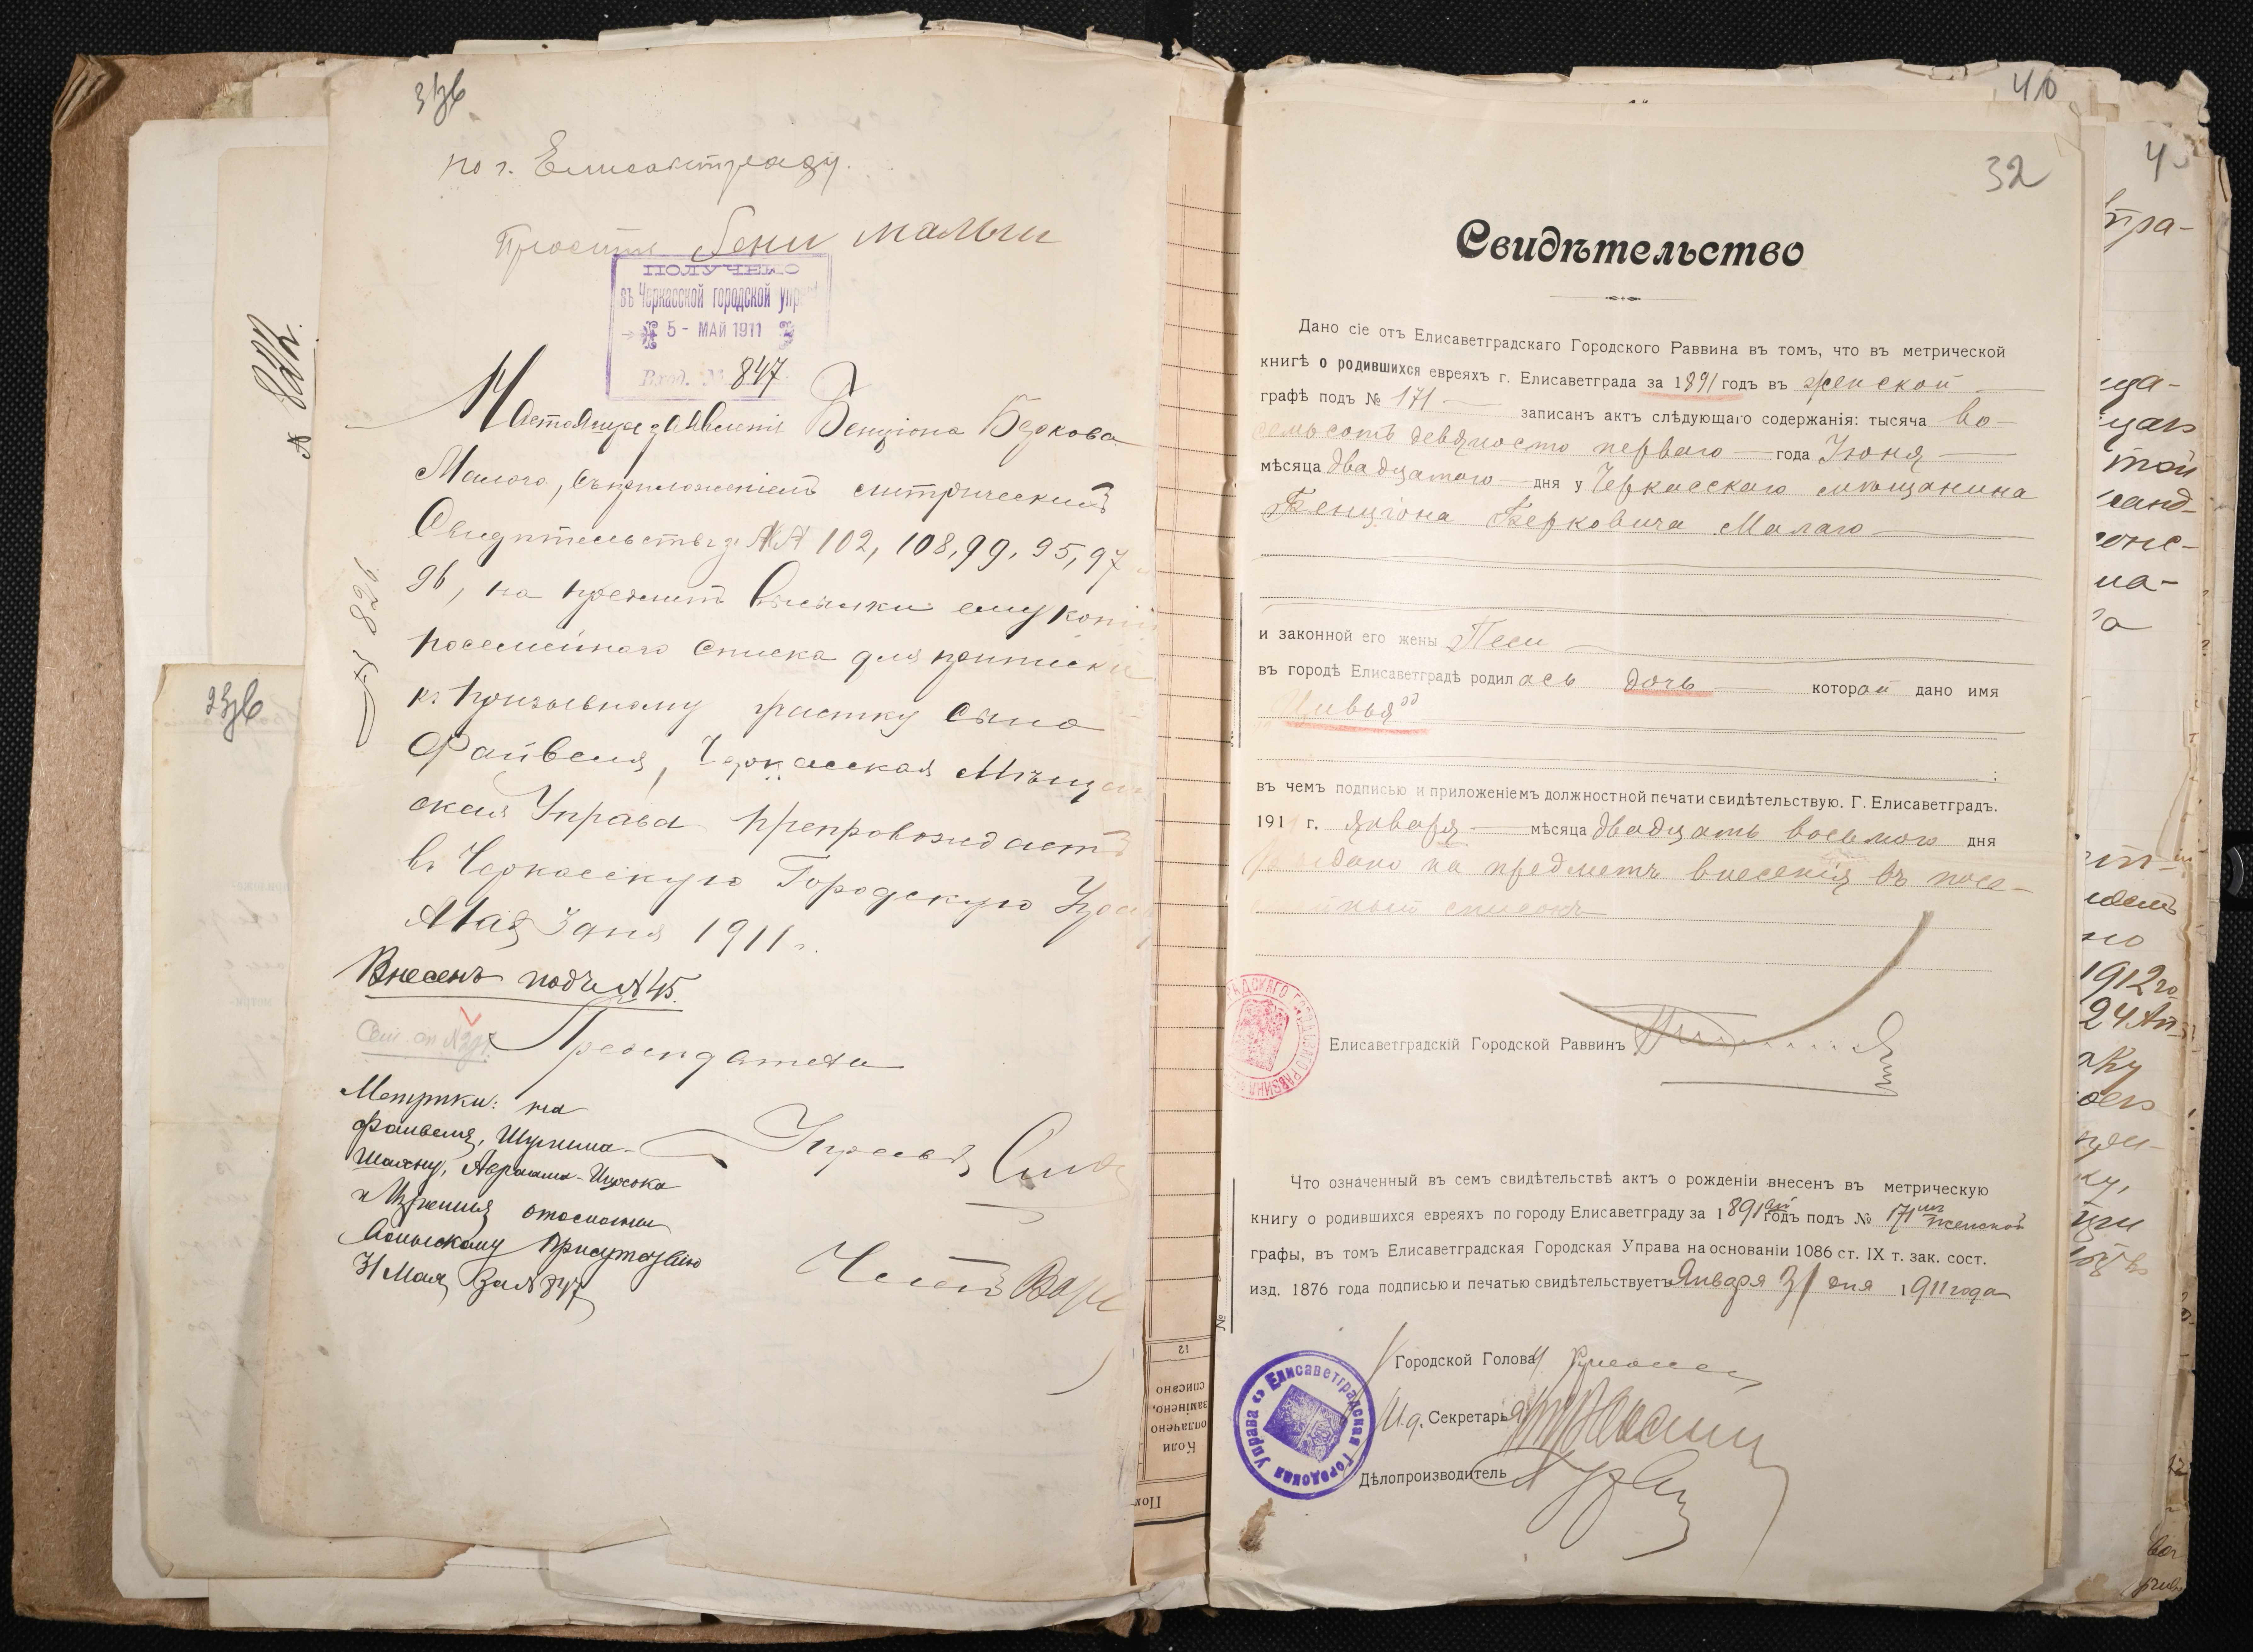 31об
по г. Елисаветграду.
Бени Малый
ПОЛУЧЕНО
въ Черкасской городской упр
5 - МАЙ 1911
Вход. № 847
№ 826.
Настоящее заявленіе Бенціона Беркова
Малого, съ приложеніемъ метрическихъ
Свидѣтельствъ за №№ 102, 108, 99, 95, 97
96, на предметъ высылки ему копіи
посемейного списка для приписки
къ призывному участку сына
Файвеля, Черкасская Мѣща
ская Управа препровождаетъ
въ Черкасскую Городскую
Мая 3 дня 1911 г.
Внесенъ подъ № 45.
Метрики: на
Файвеля, Шулима-
Шахну, Авраама-
и отосланы
Воинскому Присутствію
31 Мая за № 847
№ 822.
23об
12
списано
замінено,
оплачено
Коли
Пом
40
32
Свидѣтельство
Дано сіе отъ Елисаветградскаго Городского Раввина въ томъ, что въ метрической
книгѣ о родившихся евреяхъ г. Елисаветграда за 1891 годъ въ женской
графѣ подъ № 171 записанъ актъ слѣдующаго содержанія: тысяча во-
семьсотъ девяносто перваго года Іюня
мѣсяца двадцатаго дня у Черкасскаго мѣщанина
Бенціона Берковича Малаго
и законной его жены Песи
въ городѣ Елисаветградѣ родилась дочь которой дано имя
„Цивья"
въ чемъ подписью и приложеніемъ должностной печати свидѣтельствую. Г. Елисаветградъ.
1911 г. января мѣсяца двадцать восьмого дня
дано на предметъ внесенія въ посе-
мейный списокъ
Елисаветградскій Городской Раввинъ
Что означенный въ семъ свидѣтельствѣ актъ о рожденіи внесенъ въ метрическую
книгу о родившихся евреяхъ по городу Елисаветграду за 1891 годъ подъ № 171 женской
графы, въ томъ Елисаветградская Городская Управа на основаніи 1086 ст. IX т. зак. сост.
изд. 1876 года подписью и печатью свидѣтельствуетъ Января 31 дня 1911 года
Городской Голова
И.д. Секретаря
Дѣлопроизводитель
Елисаветградская Городская Управа
№
1912 го
24 Ап